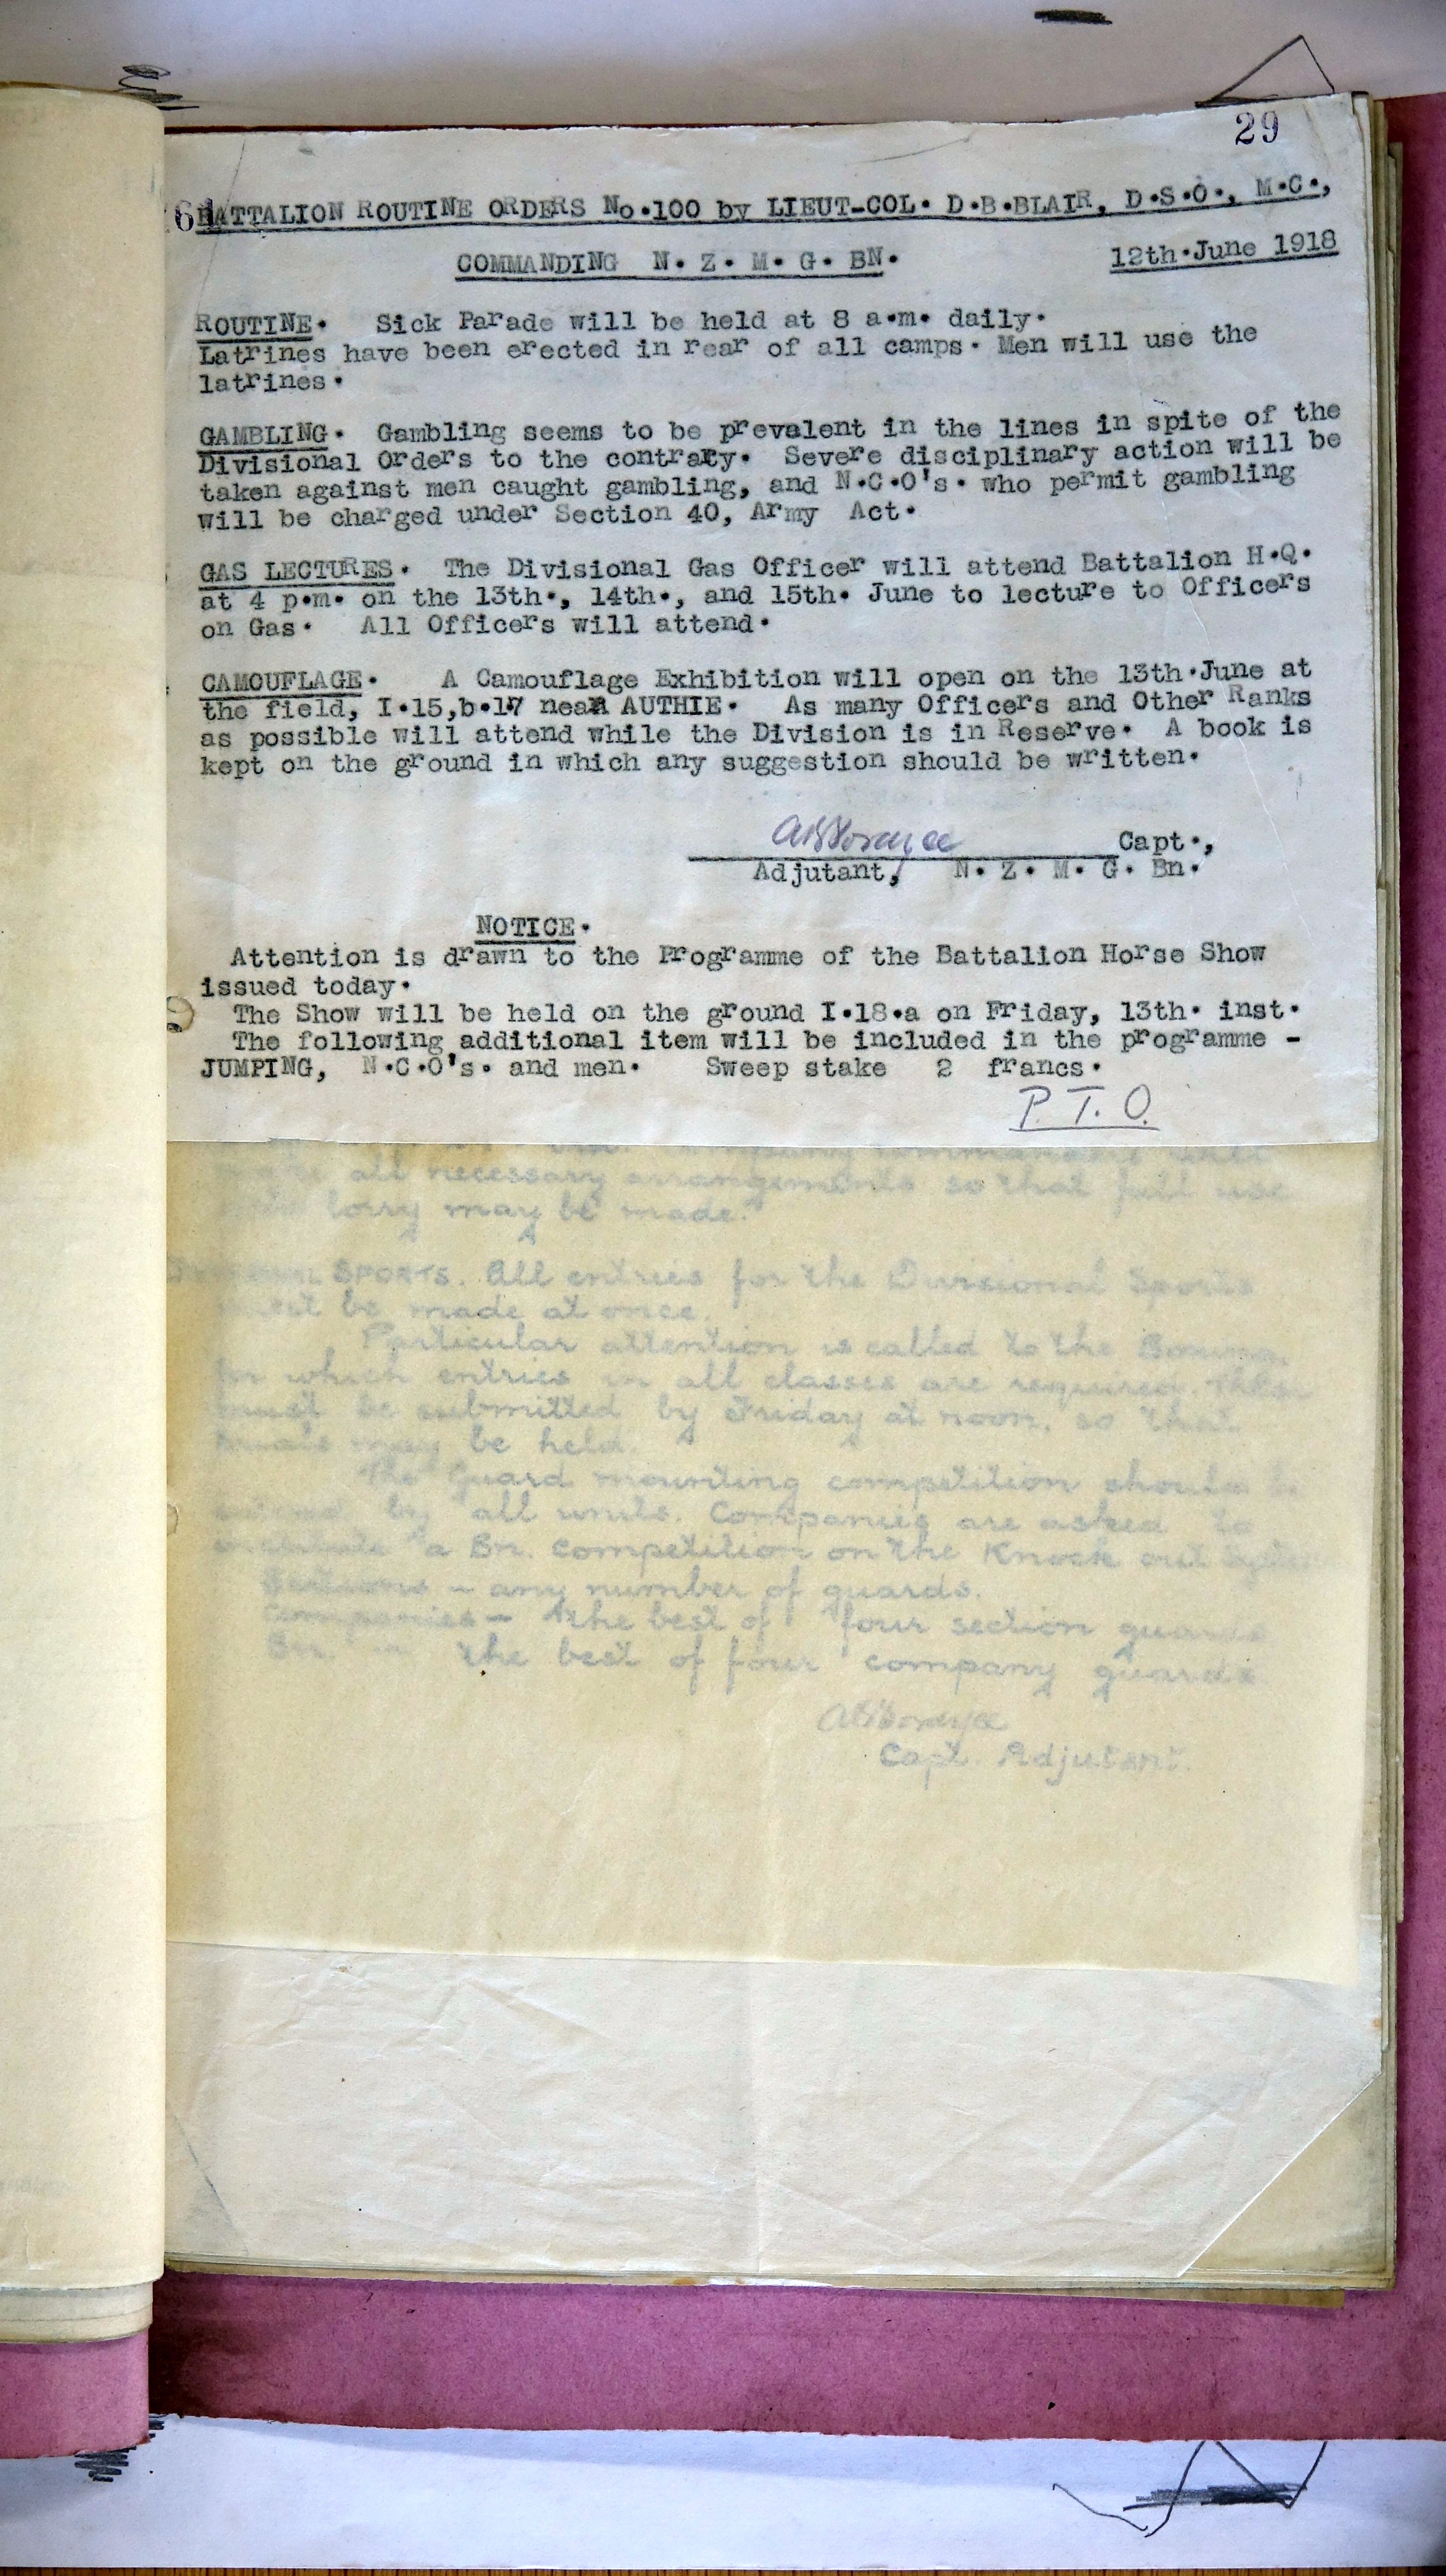 29
61
BATTALION ROUTINE ORDERS No.100 by LIEUT-COL. D.B.BLAIR, D.S.O., M.C.,
COMMANDING N. Z. M. G. BN. 12th.June 1918
ROUTINE. Sick Parade will be held at 8 a.m. daily.
Latrines have been erected in rear of all camps. Men will use the
latrines.
GAMBLING. Gambling seems to be prevalent in the lines in spite of the
Divisional Orders to the contrary. Severe disciplinary action will be
taken against men caught gambling, and N.C.O's. who permit gambling
will be charged under Section 40, Army Act.
GAS LECTURES. The Divisional Gas Officer will attend Battalion H.Q.
at 4 p.m. on the 13th., 14th., and 15th. June to lecture to Officers
on Gas. All Officers will attend.
CAMOUFLAGE. A Camouflage Exhibition will open on the 13th.June at
the field, I.15,b.17 near AUTHIE. As many Officers and Other Ranks
as possible will attend while the Division is in Reserve. A book is
kept on the ground in which any suggestion should be written.
Capt.,
Adjutant, N. Z. M. G. Bn.
NOTICE.
Attention is drawn to the Programme of the Battalion Horse Show
issued today.
The Show will be held on the ground I.18.a on Friday, 13th. inst.
The following additional item will be included in the programme -
JUMPING, N.C.O's. and men. Sweep stake 2 francs.
P.T.O.
all necessary arrangements so that full use
lorry may be made.
SPORTS. All entries for the Divisional Sports
must be made at once.
Particular attention is called to the Boxing,
for which entries in all classes are required. These
must be submitted by Friday at noon, so that
may be held.
The Guard mounting competition should be
by all units. Companies are asked to
a Bn. competition on the Knock out
Sections - any number of guards.
Companies - the best of four section guards
Bn. - the best of four company guards
Capt. Adjutant.